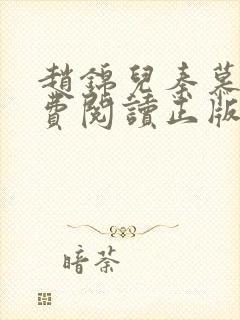 趙錦兒秦慕
費閱讀正版
暗荼